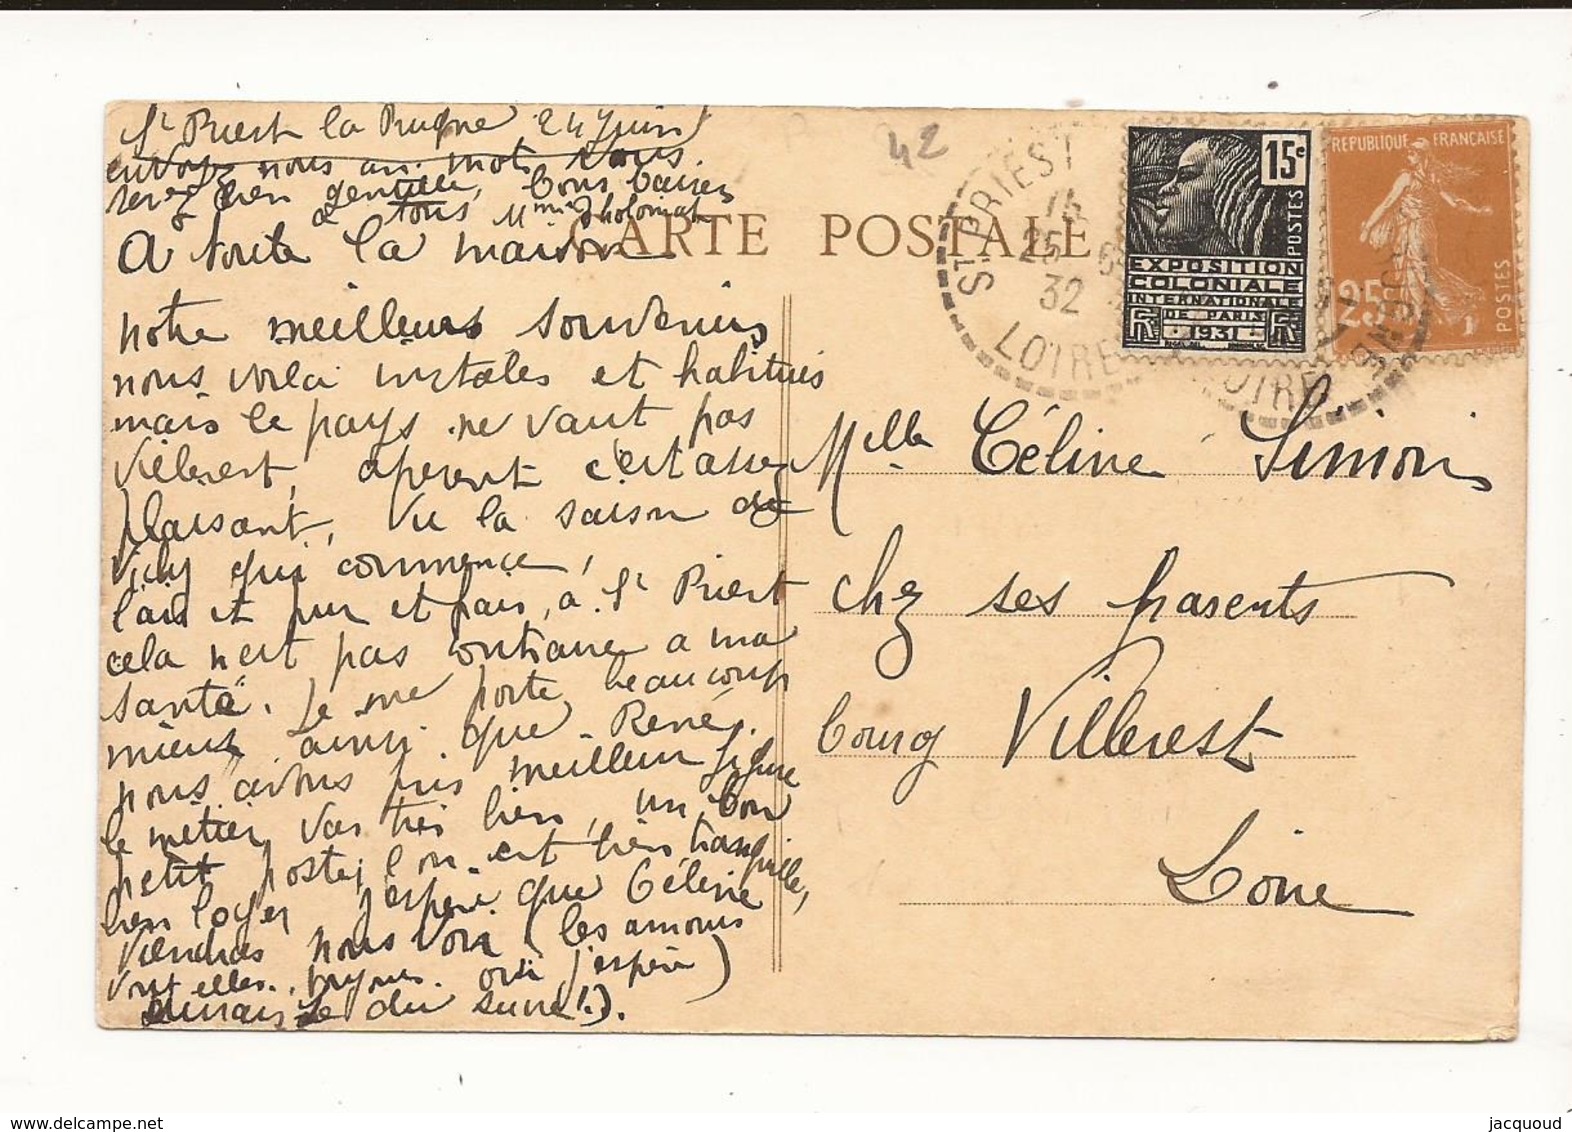 St Priest la Prugne 24 Juin
envoyez nous un mot, vous
serez bien gentille, bons baisers
à tous Mme
A toute la maison
notre meilleurs souvenirs
nous voila installes et habitués
mais le pays ne vaut pas
Villerest, aperent c'est assez
plaisant, vu la saison de
Vichy qui commence,
l'air et pur et frais, à St Priest
cela n'est pas contraire a ma
santé. Je me porte beaucoup
mieux ainsi que René,
nous avons pris meilleur figure
le métier vas très bien, un bon
petit poste, l'on est bien tranquille,
bien loger j'espère que Céline
viendras nous voir (les amours
vont elles toujours oui j'espère)
du suivre!).
CARTE POSTALE
42
ST PRIEST
14
25
32
LOIRE
15c
POSTES
EXPOSITION
COLONIALE
INTERNATIONALE
DE PARIS
1931
REPUBLIQUE FRANÇAISE
25c
POSTES
LOIRE
Melle Céline Simon
chez ses parents
bourg Villerest
Loire
delcampe.net
jacquoud